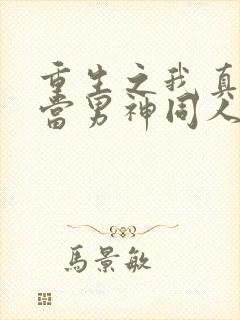 重生之我真
當男神同人
馬景敏